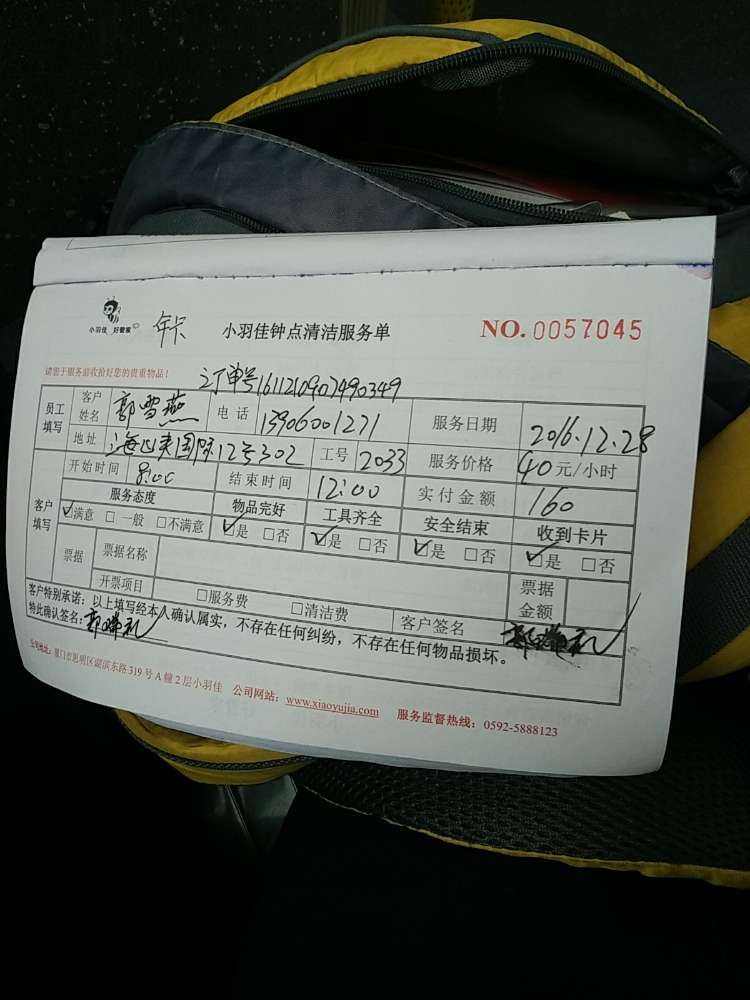 小羽佳 好管家
年卡
小羽佳钟点清洁服务单
NO. 0057045
请您于服务前收拾好您的贵重物品!
订单号1611210907490349
员工填写 客户姓名 郭雪燕 电话 13906001271 服务日期 2016.12.28
地址 海山美国际12号302 工号 2033 服务价格 40元/小时
客户填写 开始时间 8:00 结束时间 12:00 实付金额 160
服务态度 物品完好 工具齐全 安全结束 收到卡片
☑满意 □一般 □不满意 ☑是 □否 ☑是 □否 ☑是 □否 ☑是 □否
票据 票据名称 票据金额
开票项目 □服务费 □清洁费 客户签名
客户特别承诺:以上填写经本人确认属实,不存在任何纠纷,不存在任何物品损坏。
特此确认签名:
公司地址:厦门市思明区湖滨东路319号A幢2层小羽佳 公司网站:www.xiaoyujia.com 服务监督热线:0592-5888123